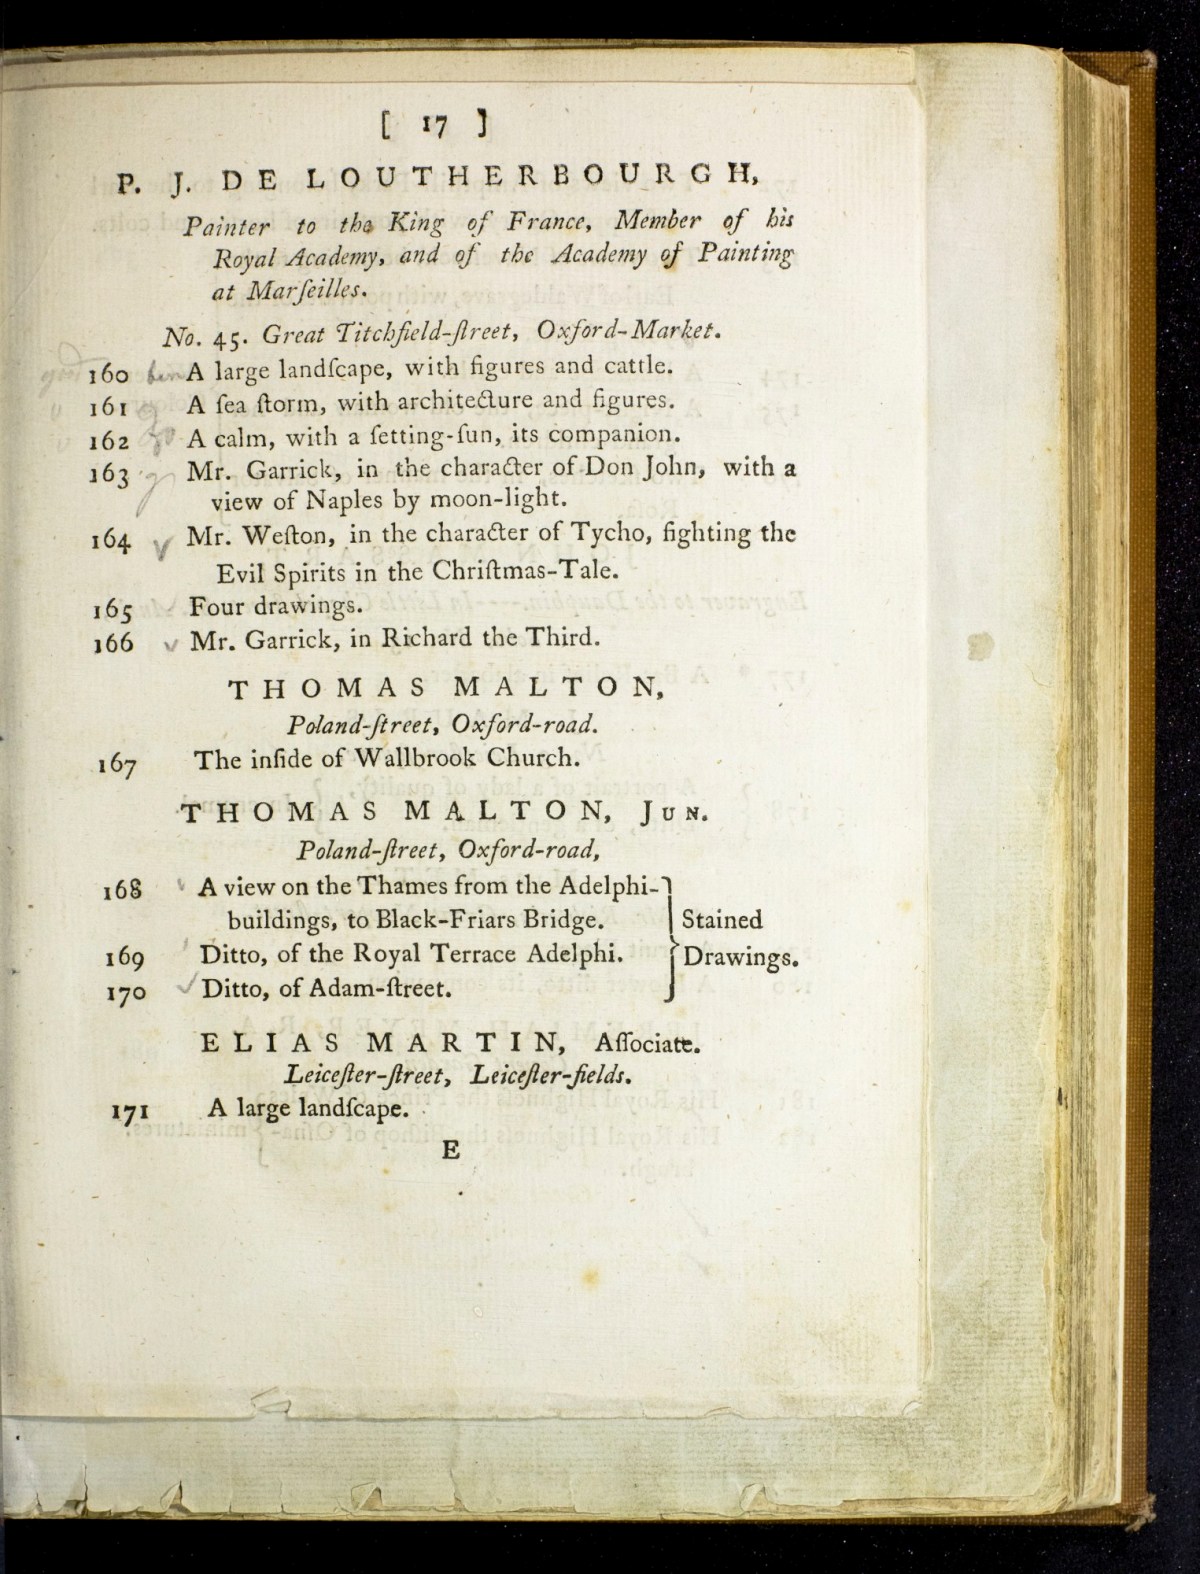 [ 17 ]
P. J. DE LOUTHERBOURGH,
Painter to the King of France, Member of his
Royal Academy, and of the Academy of Painting
at Marſeilles.
No. 45. Great Titchfield-ſtreet, Oxford-Market.
160 A large landſcape, with figures and cattle.
161 A ſea ſtorm, with architecture and figures.
162 A calm, with a ſetting-ſun, its companion.
163 Mr. Garrick, in the character of Don John, with a
view of Naples by moon-light.
164 Mr. Weſton, in the character of Tycho, fighting the
Evil Spirits in the Chriſtmas-Tale.
165 Four drawings.
166 Mr. Garrick, in Richard the Third.
THOMAS MALTON,
Poland-ſtreet, Oxford-road.
167 The inſide of Wallbrook Church.
THOMAS MALTON, JUN.
Poland-ſtreet, Oxford-road,
168 A view on the Thames from the Adelphi-
buildings, to Black-Friars Bridge. Stained
169 Ditto, of the Royal Terrace Adelphi. Drawings.
170 Ditto, of Adam-ſtreet.
ELIAS MARTIN, Aſſociate.
Leiceſter-ſtreet, Leiceſter-fields.
171 A large landſcape.
E